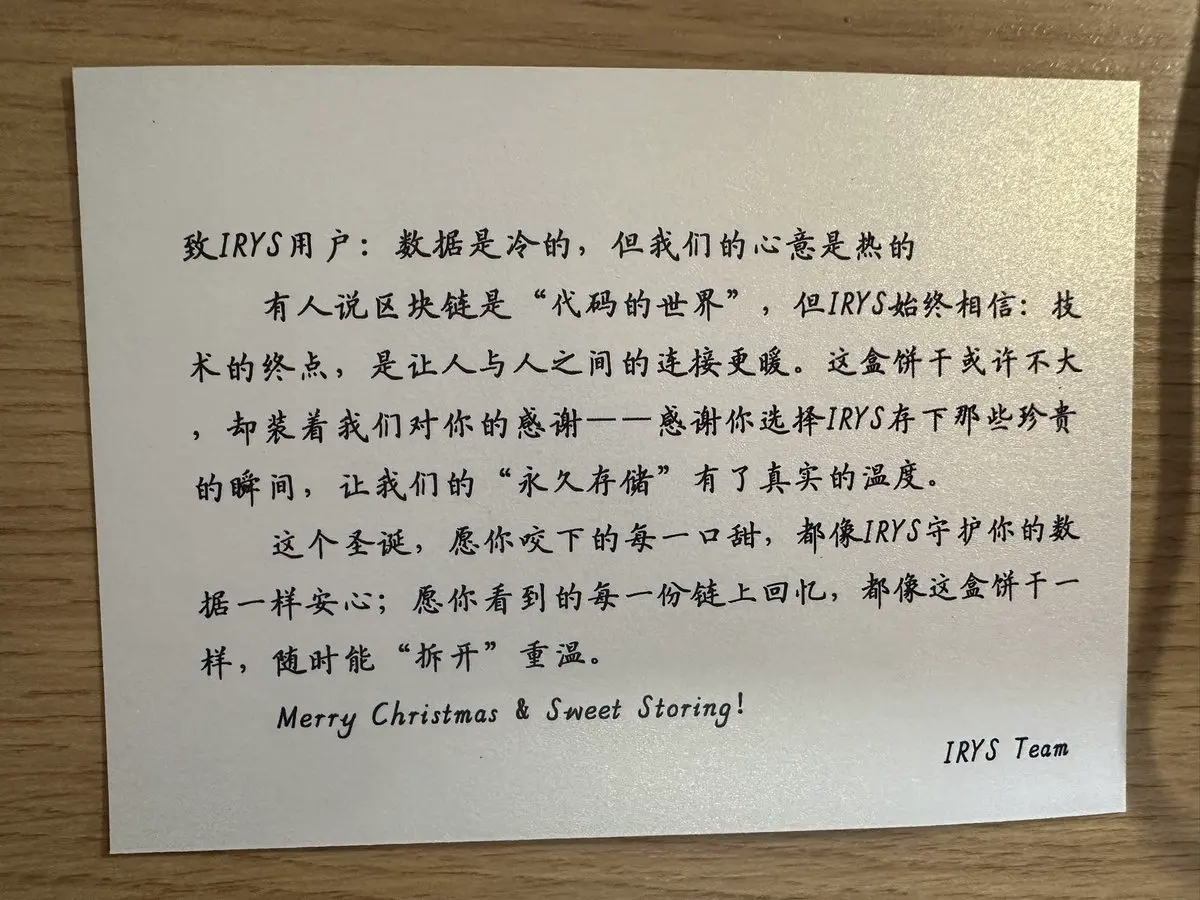 致IRYS用户：数据是冷的，但我们的心意是热的
有人说区块链是“代码的世界”，但IRYS始终相信：技
术的终点，是让人与人之间的连接更暖。这盒饼干或许不大
，却装着我们对你的感谢——感谢你选择IRYS存下那些珍贵
的瞬间，让我们的“永久存储”有了真实的温度。
这个圣诞，愿你咬下的每一口甜，都像IRYS守护你的数
据一样安心；愿你看到的每一份链上回忆，都像这盒饼干一
样，随时能“拆开”重温。
Merry Christmas & Sweet Storing!
IRYS Team